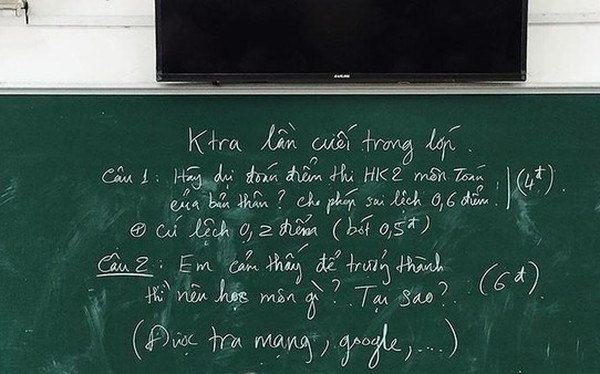 Ktra lần cuối trong lớp.
Câu 1: Hãy dự đoán điểm thi HK2 môn Toán
của bản thân? Cho phép sai lệch 0,6 điểm. (4đ).
⊕ Cứ lệch 0,2 điểm (bớt 0,5đ)
Câu 2: Em cảm thấy để trưởng thành
thì nên học môn gì? Tại sao? (6đ)
(Được tra mạng, google,....)